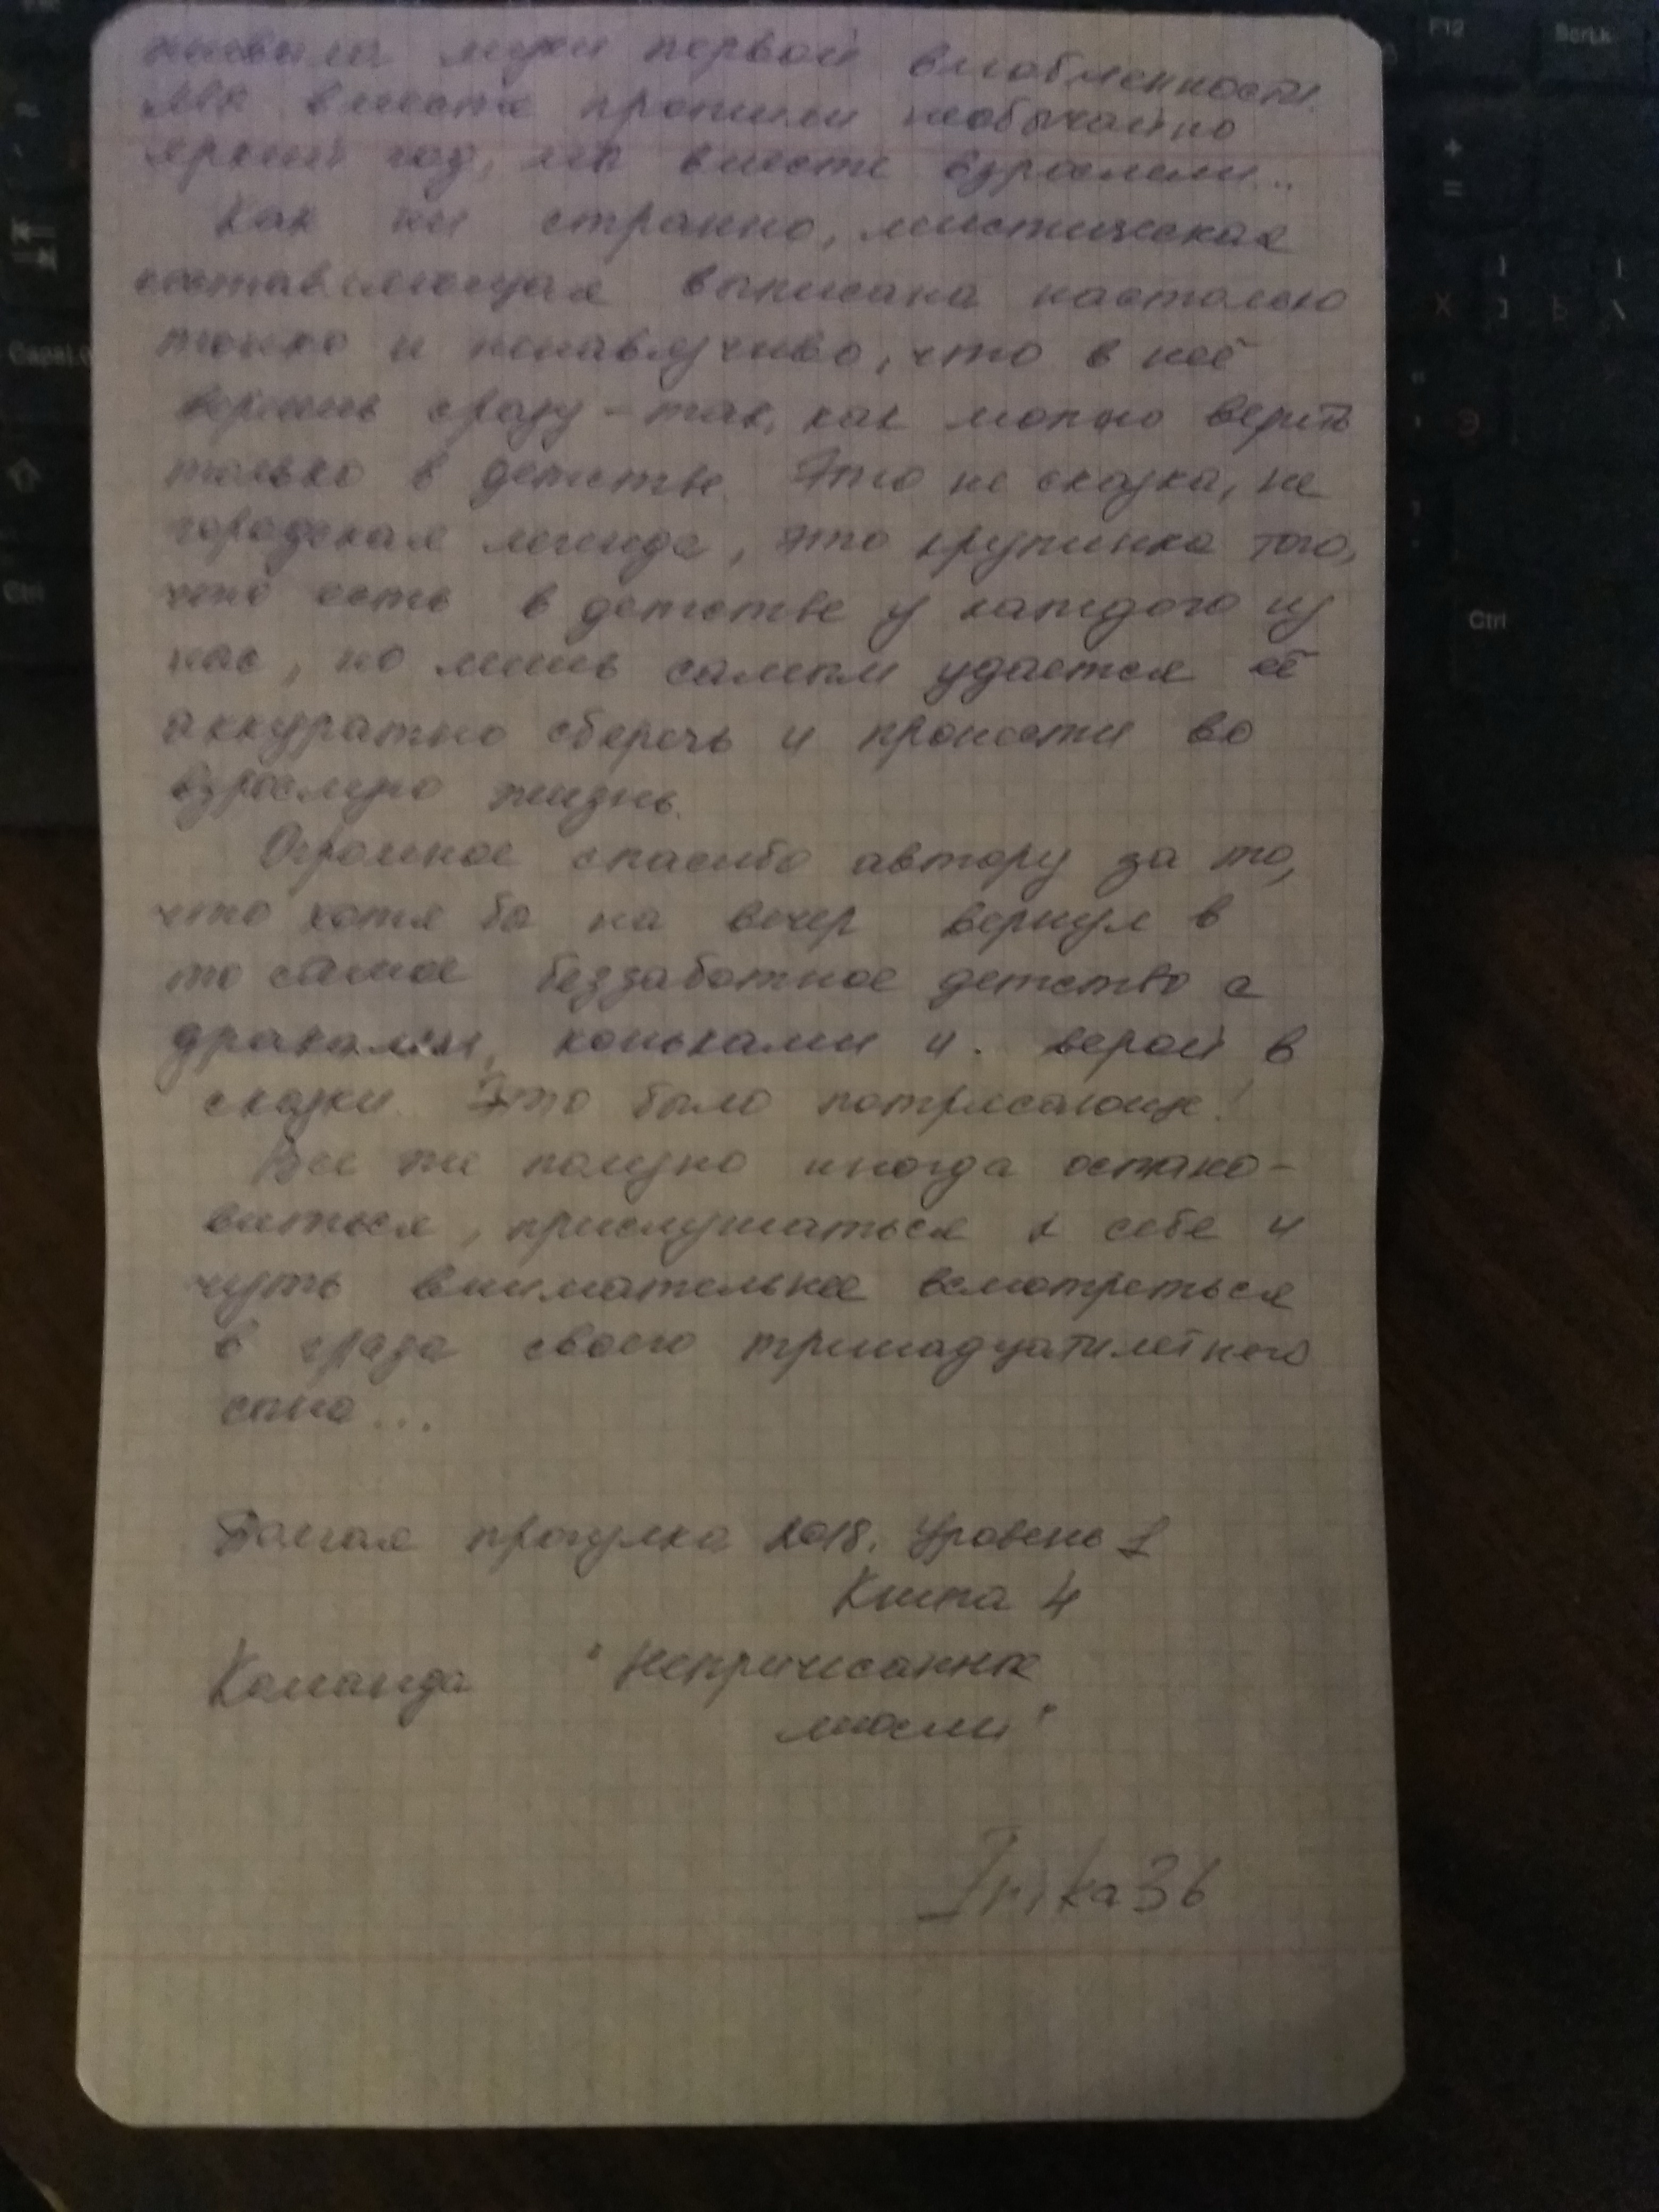 муки первой влюбленности.
Мы вместе прожили необычайно
яркий год, мы вместе взрослели...
Как ни странно, мистическая
составляющая выписана настолько
тонко и ненавязчиво, что в неё
веришь сразу - так, как можно верить
только в детстве. Это не сказка, не
городская легенда, это крупинка того,
что есть в детстве у каждого из
нас, но лишь самым удается её
аккуратно сберечь и пронести во
взрослую жизнь.
Огромное спасибо автору за то,
что хотя бы на вечер вернул в
то самое беззаботное детство с
драками, коньками и верой в
сказки. Это было потрясающе!
Все же полезно иногда остано-
виться, прислушаться к себе и
чуть внимательнее всмотреться
в глаза своего тринадцатилетнего
сына...
Долгая прогулка 2018. Уровень 1
Книга 4
Команда "Непричесанные
мысли"
Irika36
F12
ScrLk
+
=
]
Х
]
Ъ
\
"
'
Э
CapsLo
Ctrl
Ctrl